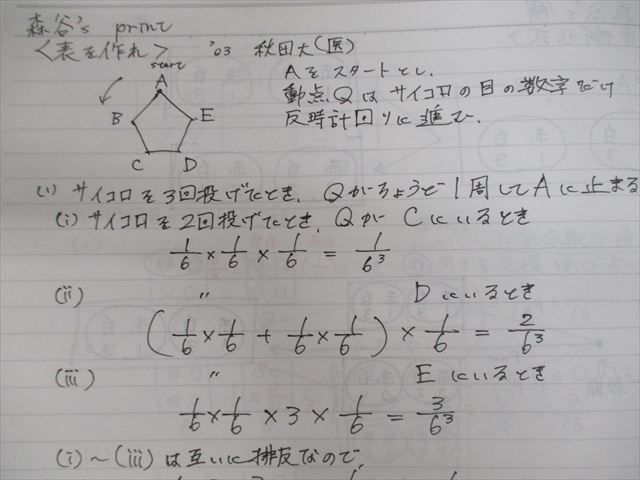 森谷's print
<表を作れ> '03 秋田大(医)
start
A
B
E
C
D
Aをスタートとし、
動点Qはサイコロの目の数字だけ
反時計回りに進む.
(1) サイコロを3回投げたとき、Qがちょうど1周してAに止まる
(i) サイコロを2回投げたとき、QがCにいるとき
1/6 × 1/6 × 1/6 = 1/6³
(ii) 〃 Dにいるとき
(1/6 × 1/6 + 1/6 × 1/6) × 1/6 = 2/6³
(iii) 〃 Eにいるとき
1/6 × 1/6 × 3 × 1/6 = 3/6³
(i)～(iii)は互いに排反なので、